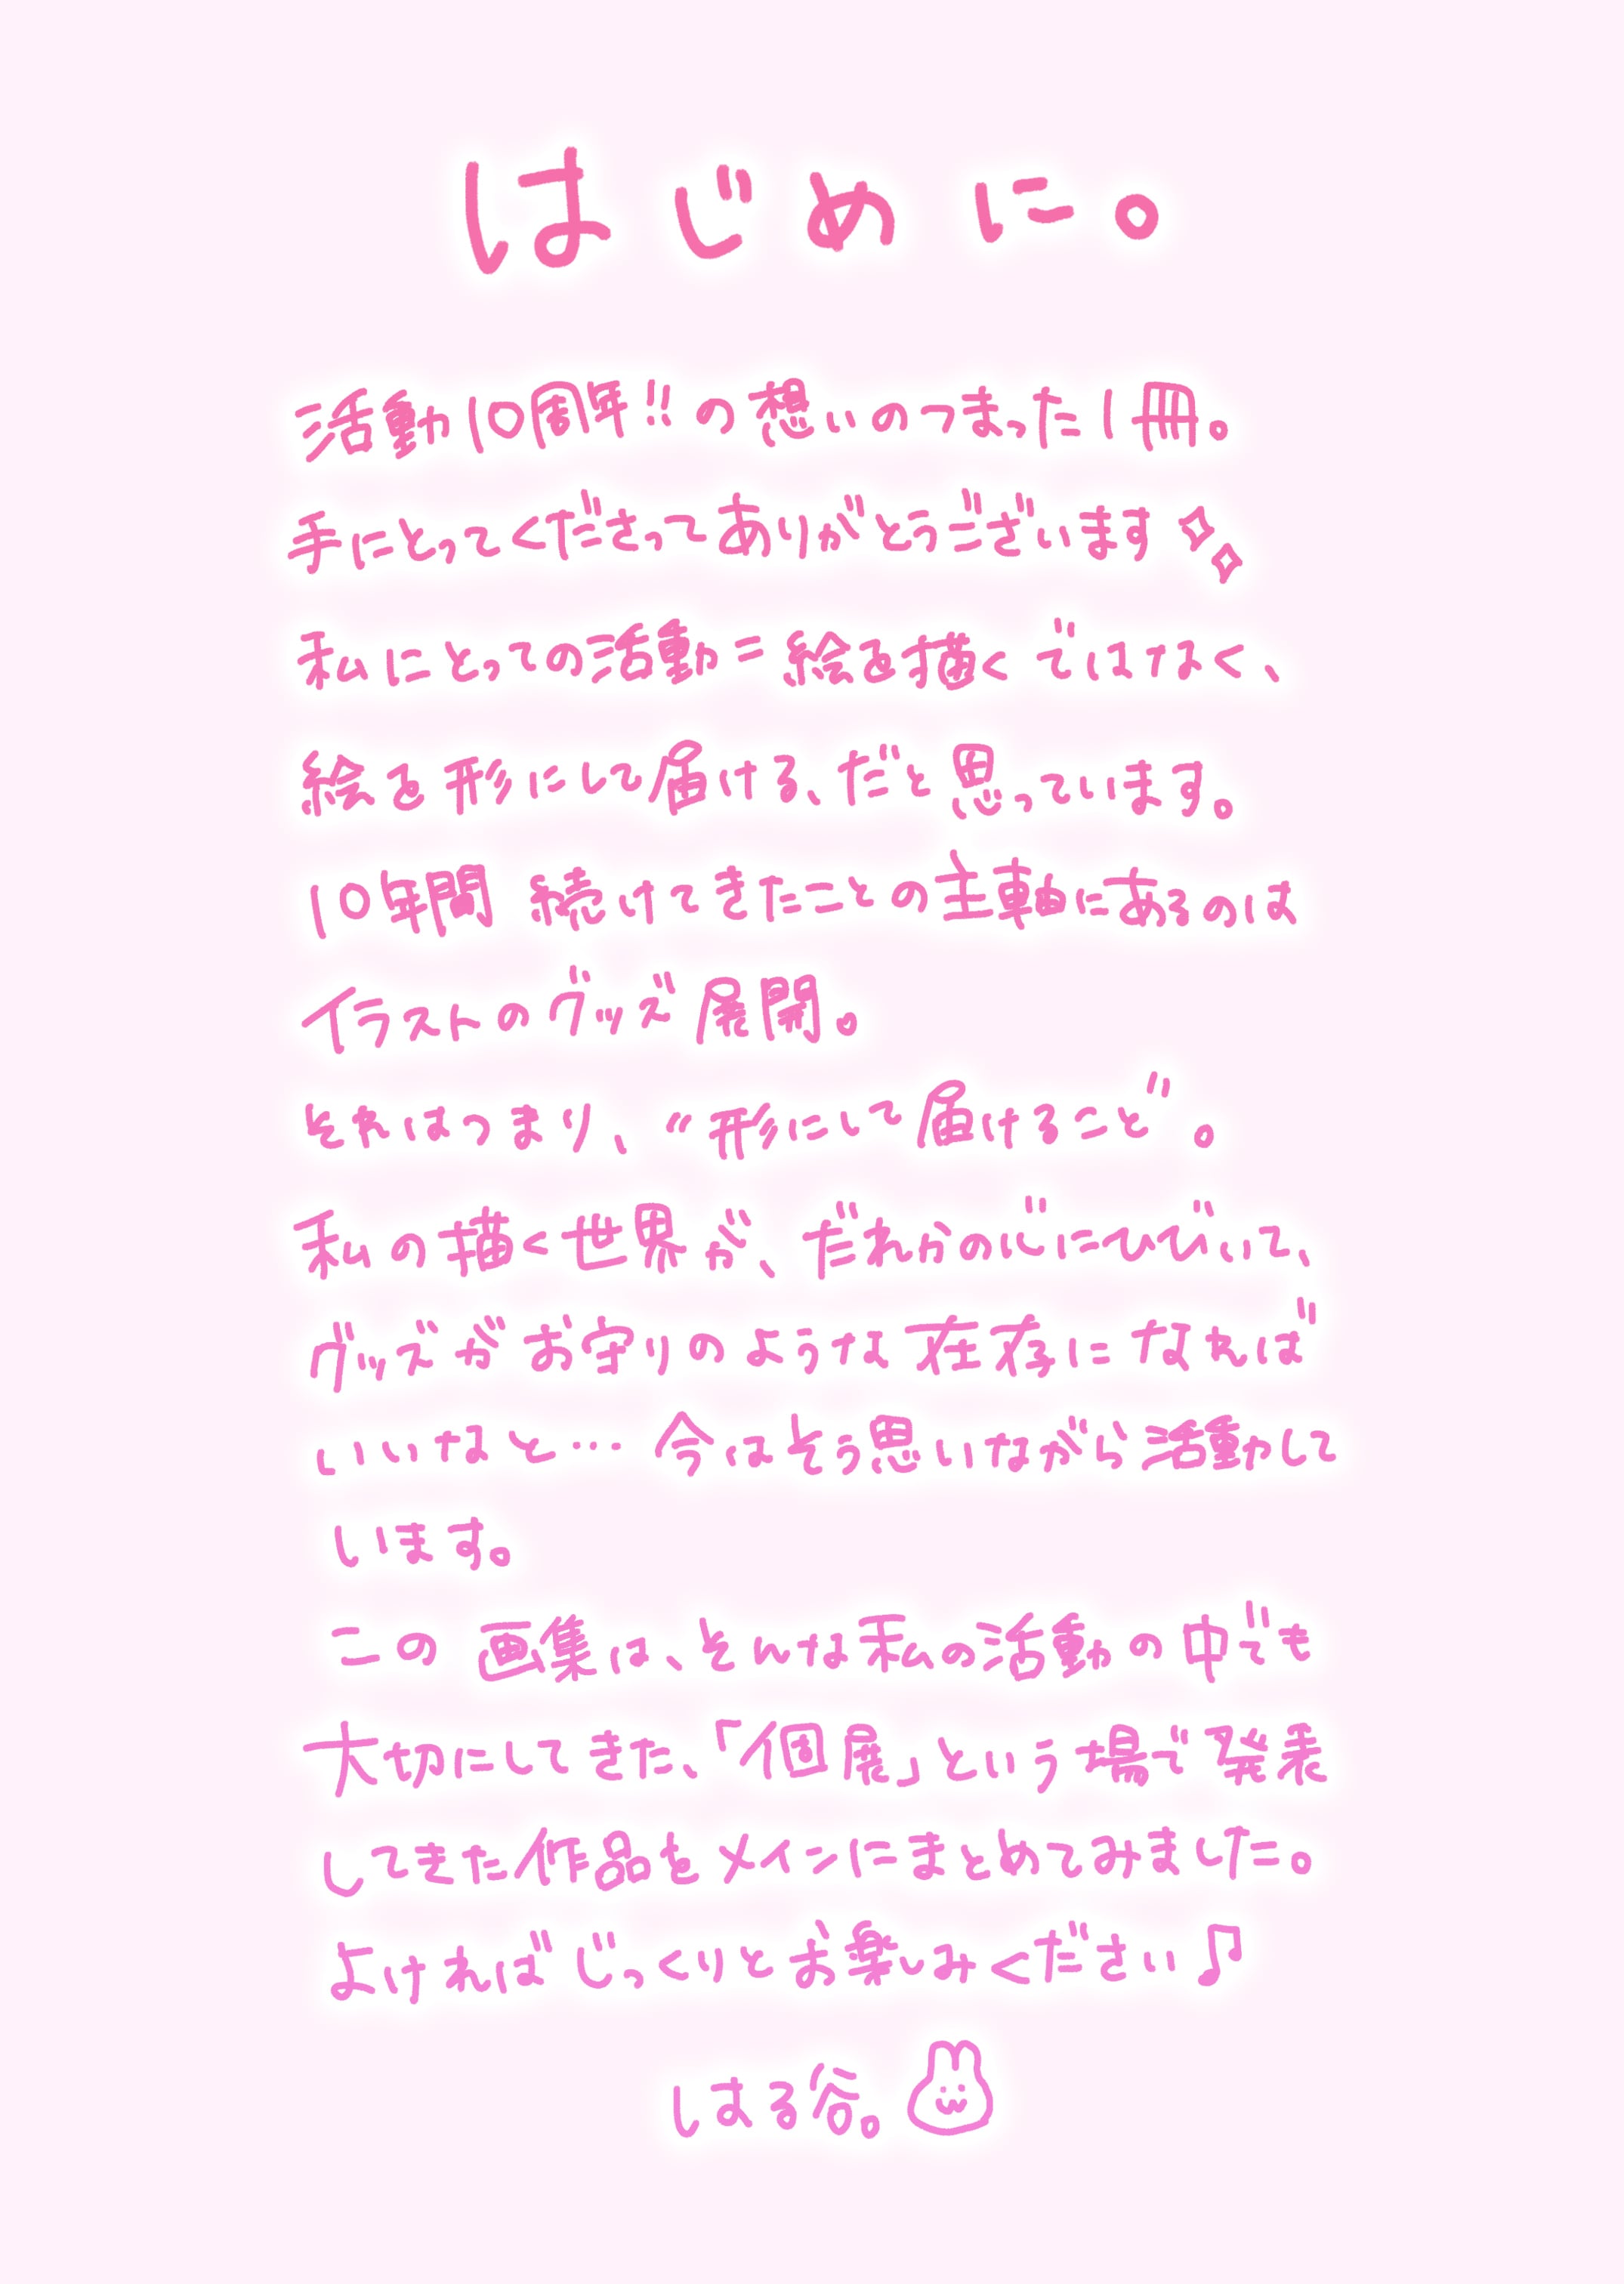 はじめに。
活動10周年!!の想いのつまった1冊。
手にとってくださってありがとうございます✧✧
私にとっての活動=絵を描くではなく、
絵を形にして届ける、だと思っています。
10年間 続けてきたことの主軸にあるのは
イラストのグッズ展開。
それはつまり、〝形にして届けること〟。
私の描く世界が、だれかの心にひびいて、
グッズがお守りのような存在になれば
いいなと… 今はそう思いながら活動して
います。
この 画集は、そんな私の活動の中でも
大切にしてきた、「個展」という場で発表
してきた作品をメインにまとめてみました。
よければじっくりとお楽しみください♫
はる谷。